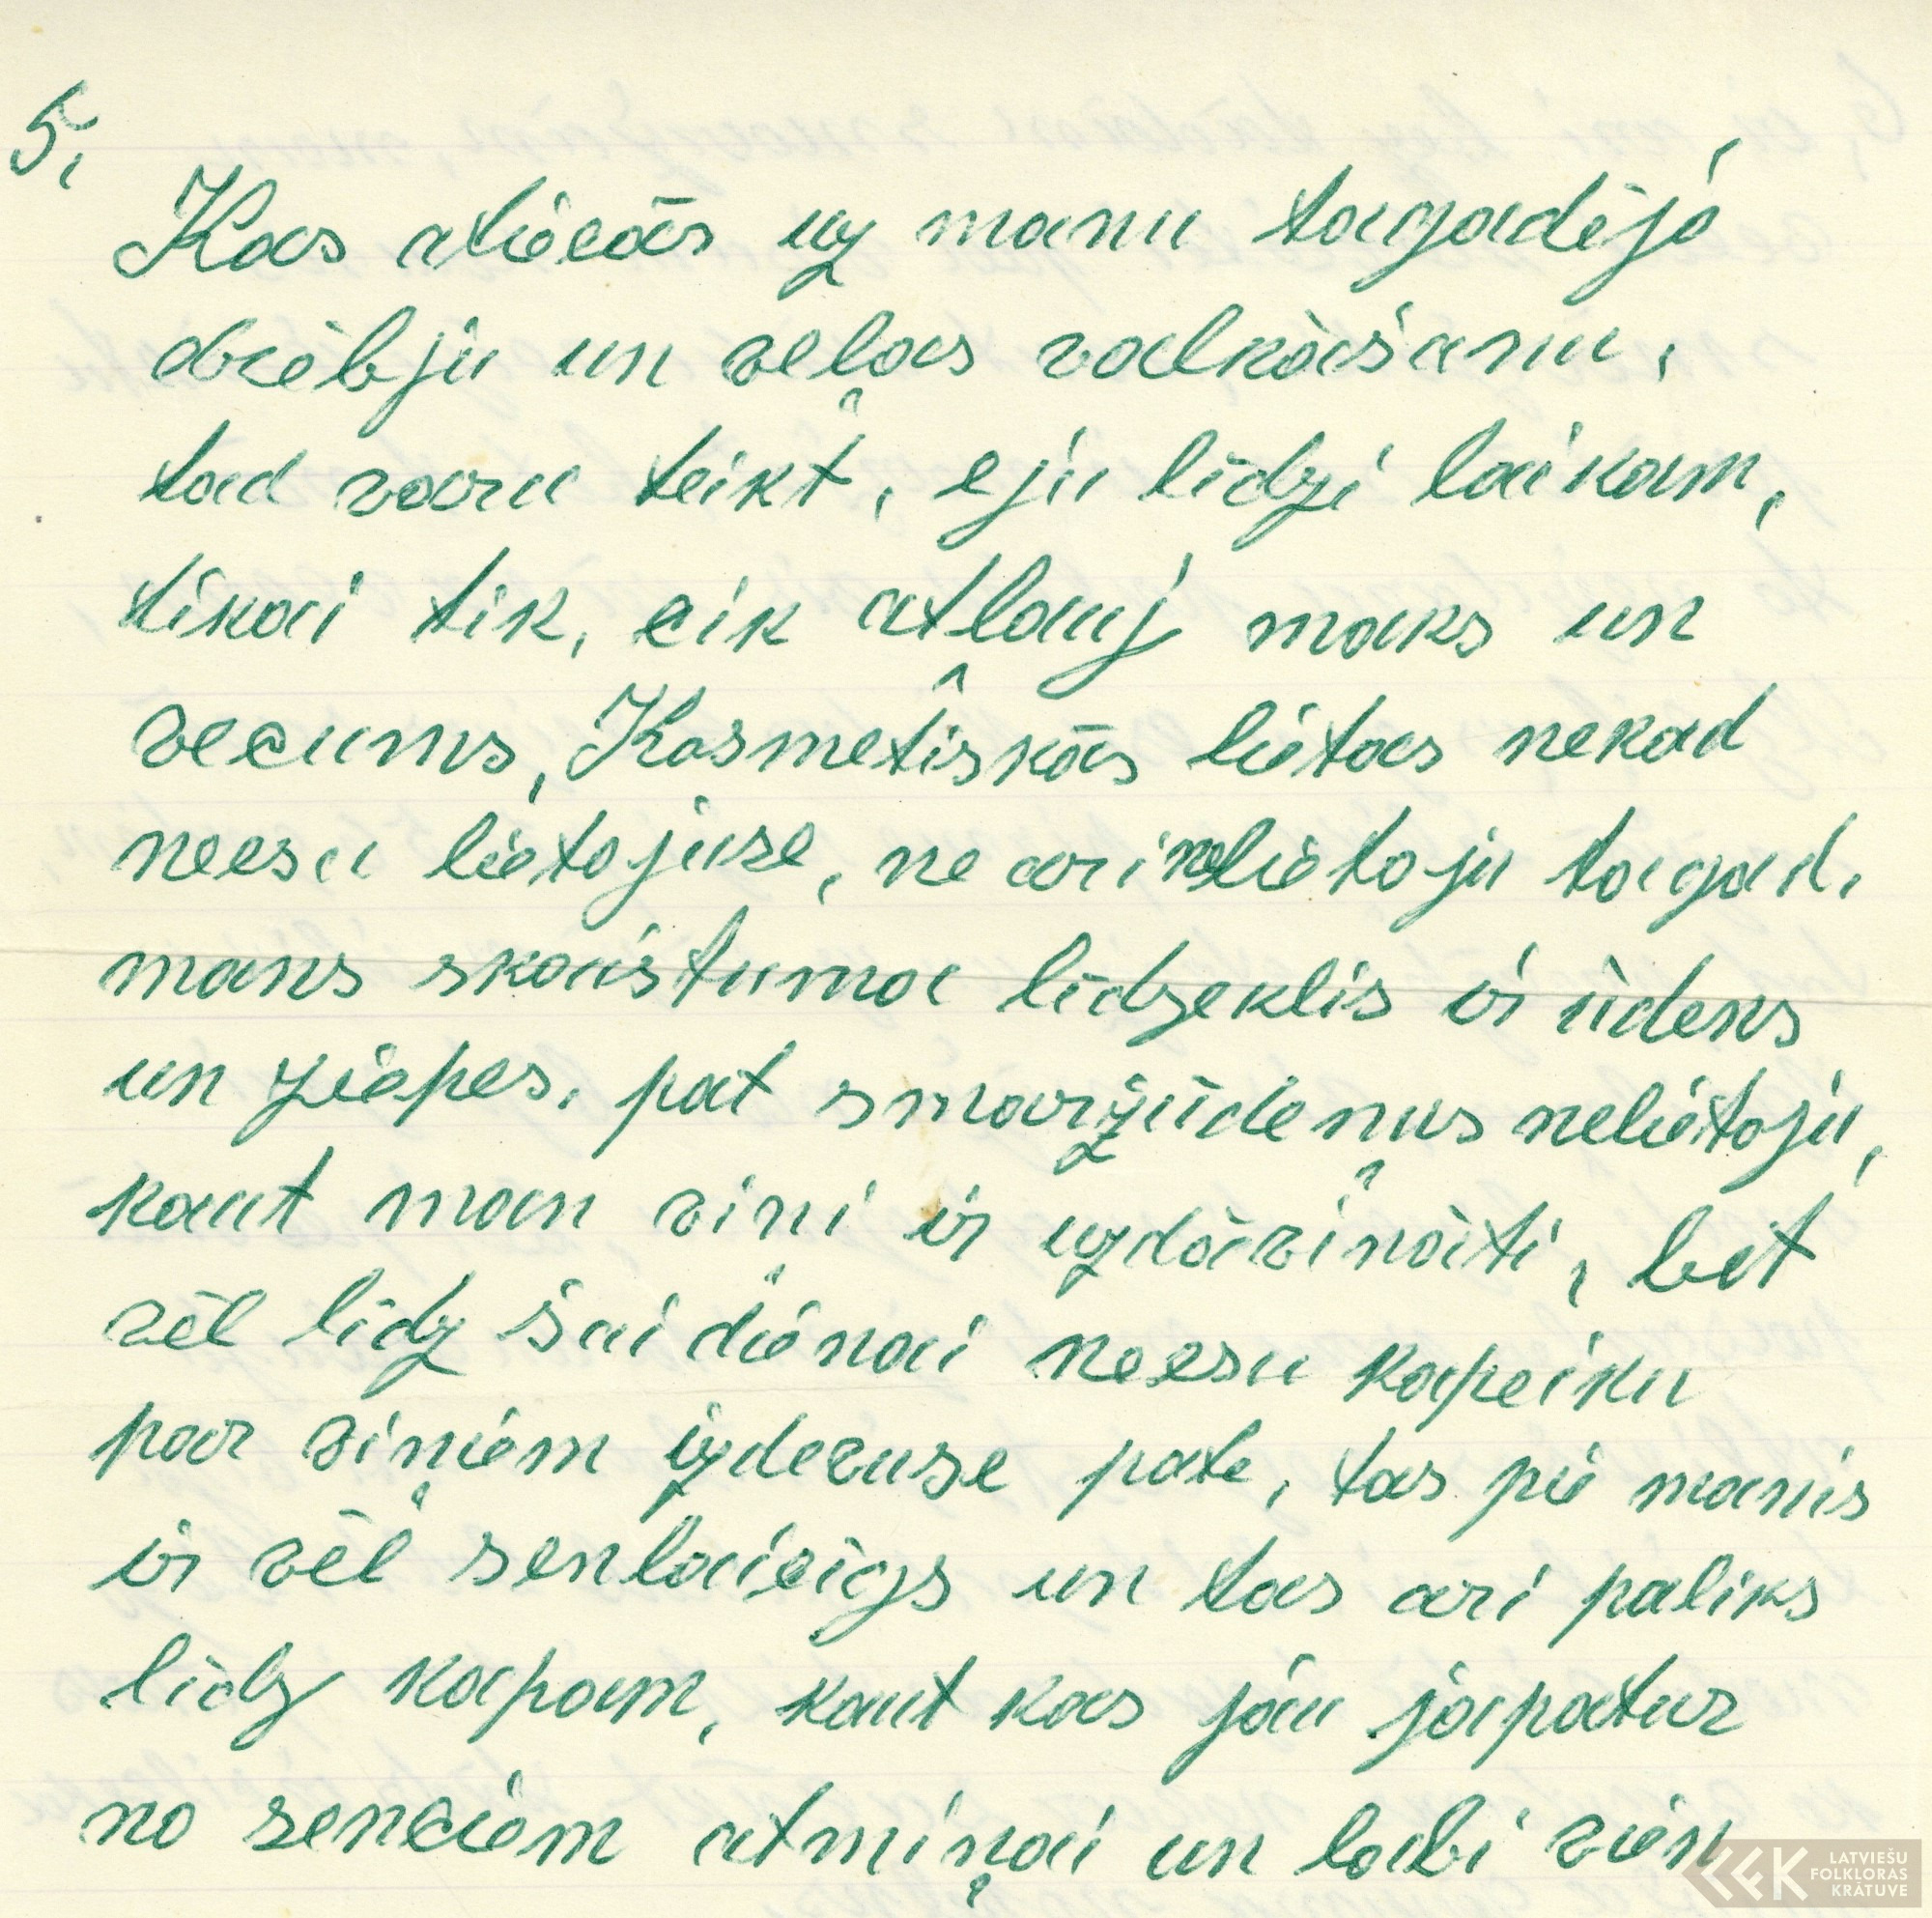 5.
Kas atiecās uz manu tagadējo
drēbju un veļas valkāšanu,
tad varu teikt, eju līdzi laikam,
tikai tik, cik atļauj maks un
vecums, Kosmetiskās lietas nekad
neesu lietojuse, ne ari nelietoju tagad.
mans skaistuma līdzeklis ir ūdens
un ziepes. pat smaržūdeņus nelietoju,
kaut man viņi ir uzdāvināti, bet
vēl līdz šai dienai neesu kapeiku
par viņiem izdevuse pate, tas pie manis
ir vēl senlaicīgs un tas ari paliks
līdz kapam, kaut kas jau jāpatur
no senčiem atmiņai un labi vien
LATVIEŠU
FOLKLORAS
KRĀTUVE